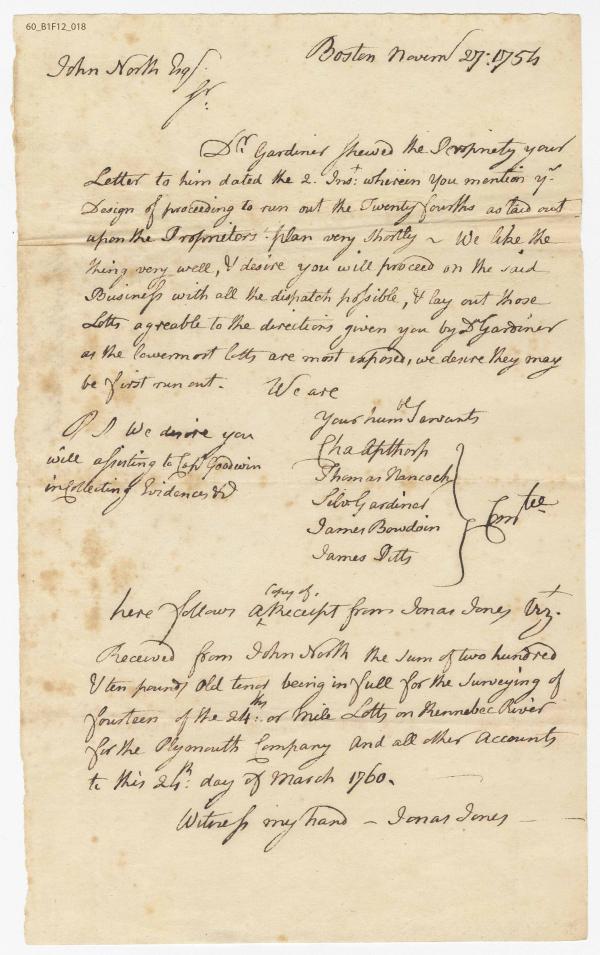 60_B1F12_018
Boston Novem.r 27: 1754
John North Esqr.
Sr.
Dr. Gardiner shewed the Propriety your
Letter to him dated the 2. Inst: wherein you mention yr.
Design of proceeding to run out the Twenty fourths as laid out
upon the Proprietors plan very shortly ~ We like the
thing very well, & desire you will proceed on the said
Business with all the dispatch possible, & lay out those
Lotts agreable to the directions given you by Dr. Gardiner
as the lowermost lotts are most exposed, we desire they may
be first run out. We are
Your humble Servants
Cha Apthorp
Thomas Hancock
Silv Gardiner
James Bowdoin
James Pitts
Comtee
P S We desire you
will assisting to Capt Goodwin
in Collecting Evidences &c
here follows a Copy of. Receipt from Jonas Jones Vizt.
Received from John North the sum of two hundred
& ten pounds Old tenor being in full for the Surveying of
fourteen of the 24ths. or mile Lotts on Kennebec River
for the Plymouth Company and all other Accounts
to this 24th: day of March 1760.
Witness my hand ~ Jonas Jones —